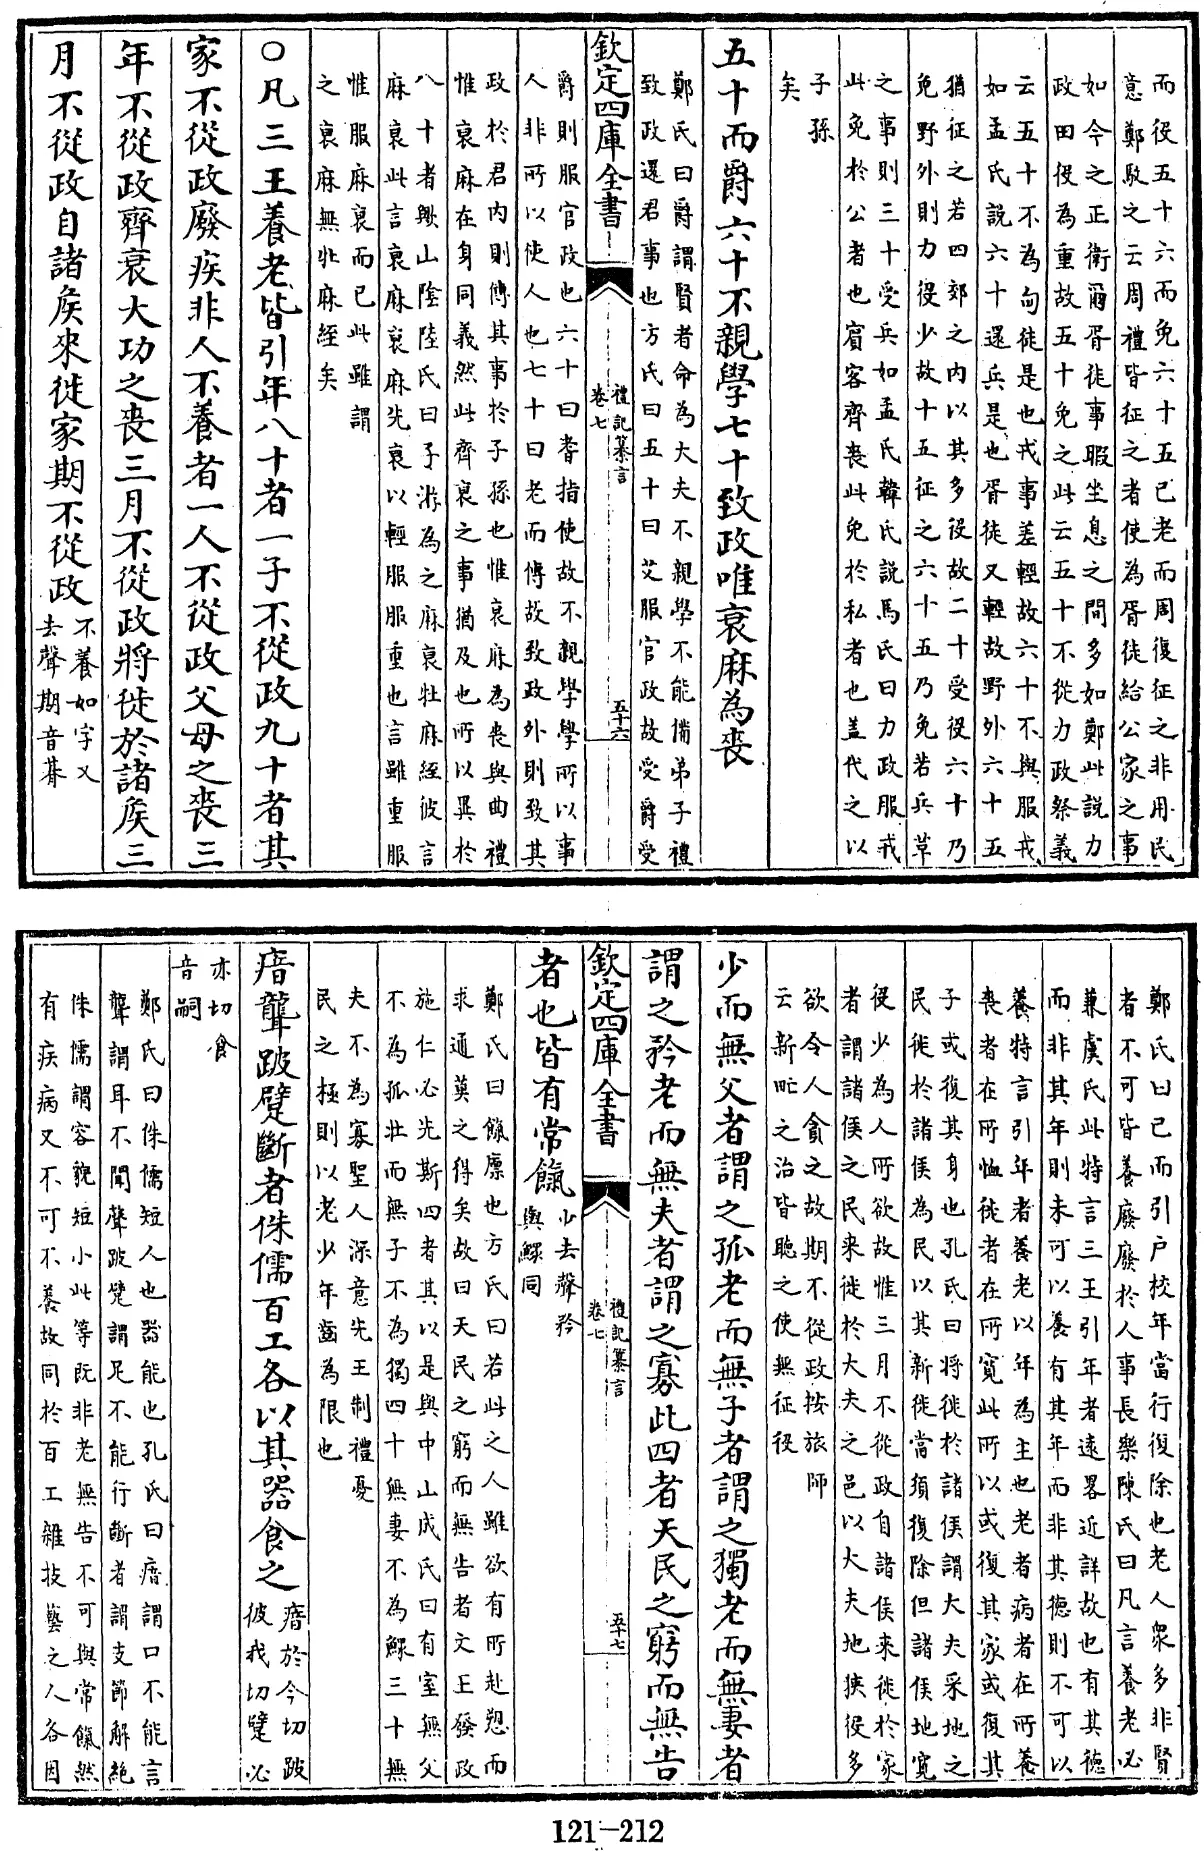 而役五十六而免六十五已老而周復征之非用民
意鄭駁之云周禮皆征之者使為胥徒給公家之事
如今之正衛爾胥徒事暇坐息之間多如鄭此説力
政田役為重故五十免之此云五十不從力政祭義
云五十不為甸徒是也戎事差輕故六十不與服戎
如孟氏説六十還兵是也胥徒又輕故野外六十五
猶征之若四郊之内以其多役故二十受役六十乃
免野外則力役少故十五征之六十五乃免若兵革
之事則三十受兵如孟氏韓氏説馬氏曰力政服戎
此免於公者也賔客齊喪此免於私者也盖代之以
子孫
矣
五十而爵六十不親學七十致政唯衰麻為喪
鄭氏曰爵謂賢者命為大夫不親學不能備弟子禮
致政還君事也方氏曰五十曰艾服官政故受爵受
欽定四庫全書
禮記纂言
卷七
五十六
爵則服官政也六十曰耆指使故不親學學所以事
人非所以使人也七十曰老而傳故致政外則致其
政於君内則傳其事於子孫也惟衰麻為喪與曲禮
惟衰麻在身同義然此齊衰之事猶及也所以異於
八十者歟山隂陸氏曰子游為之麻衰牡麻絰彼言
麻衰此言衰麻衰麻先衰以輕服服重也言雖重服
惟服麻衰而已此雖謂
之衰麻無牡麻絰矣
○凡三王養老皆引年八十者一子不從政九十者其
家不從政廢疾非人不養者一人不從政父母之喪三
年不從政齊衰大功之喪三月不從政將徙於諸侯三
月不從政自諸侯來徙家期不從政不養如字又
去聲期音朞
鄭氏曰已而引户校年當行復除也老人衆多非賢
者不可皆養廢廢於人事長樂陳氏曰凡言養老必
兼虞氏此特言三王引年者逺畧近詳故也有其德
而非其年則未可以養有其年而非其徳則不可以
養特言引年者養老以年為主也老者病者在所養
喪者在所恤徙者在所寛此所以或復其家或復其
子或復其身也孔氏曰將徙於諸侯謂大夫采地之
民徙於諸侯為民以其新徙當須復除但諸侯地寛
役少為人所欲故惟三月不從政自諸侯來徙於家
者謂諸侯之民來徙於大夫之邑以大夫地狹役多
欲令人貪之故期不從政按旅師
云新甿之治皆聽之使無征役
少而無父者謂之孤老而無子者謂之獨老而無妻者
謂之矜老而無夫者謂之寡此四者天民之窮而無告
欽定四庫全書
禮記纂言
卷七
五十七
者也皆有常餼少去聲矜
與鰥同
鄭氏曰餼廪也方氏曰若此之人雖欲有所赴愬而
求通莫之得矣故曰天民之窮而無告者文王發政
施仁必先斯四者其以是與中山成氏曰有室無父
不為孤壯而無子不為獨四十無妻不為鰥三十無
夫不為寡聖人深意先王制禮憂
民之極則以老少年齒為限也
瘖聾跛躄斷者侏儒百工各以其器食之瘖於今切跛
彼我切躄必
亦切食
音嗣
鄭氏曰侏儒短人也器能也孔氏曰瘖謂口不能言
聾謂耳不聞聲跛躄謂足不能行斷者謂支節解絶
侏儒謂容貌短小此等既非老無告不可與常餼然
有疾病又不可不養故同於百工雜技藝之人各因
121-212